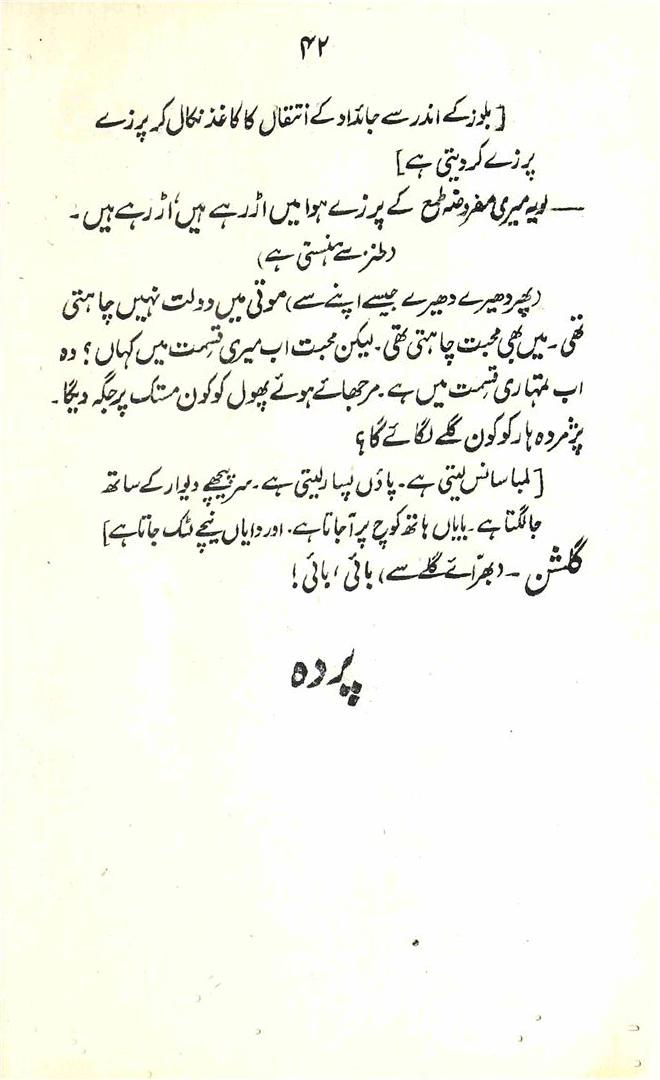 ۴۲
[بلوز کے اندر سے جائداد کے انتقال کا کاغذ نکال کر پرزے
پرزے کر دیتی ہے]
— لو یہ میری مفروضہ طمع کے پرزے ہوا میں اڑ رہے ہیں، اڑ رہے ہیں۔
(طنز سے ہنستی ہے)
(پھر دھیرے دھیرے جیسے اپنے سے) موتی میں دولت نہیں چاہتی
تھی۔ میں بھی محبت چاہتی تھی۔ لیکن محبت اب میری قسمت میں کہاں؟ وہ
اب تمہاری قسمت میں ہے۔ مرجھائے ہوئے پھول کو کون مستک پر جگہ دیگا۔
پژمردہ ہار کو کون گلے لگائے گا؟
[لمبا سانس لیتی ہے۔ پاؤں پسار لیتی ہے۔ سر پیچھے دیوار کے ساتھ
جا لگتا ہے۔ بایاں ہاتھ کوچ پر آجاتا ہے۔ اور دایاں نیچے لٹک جاتا ہے]
گلشن ۔ (بھرّائے گلے سے) بائی، بائی!
پردہ